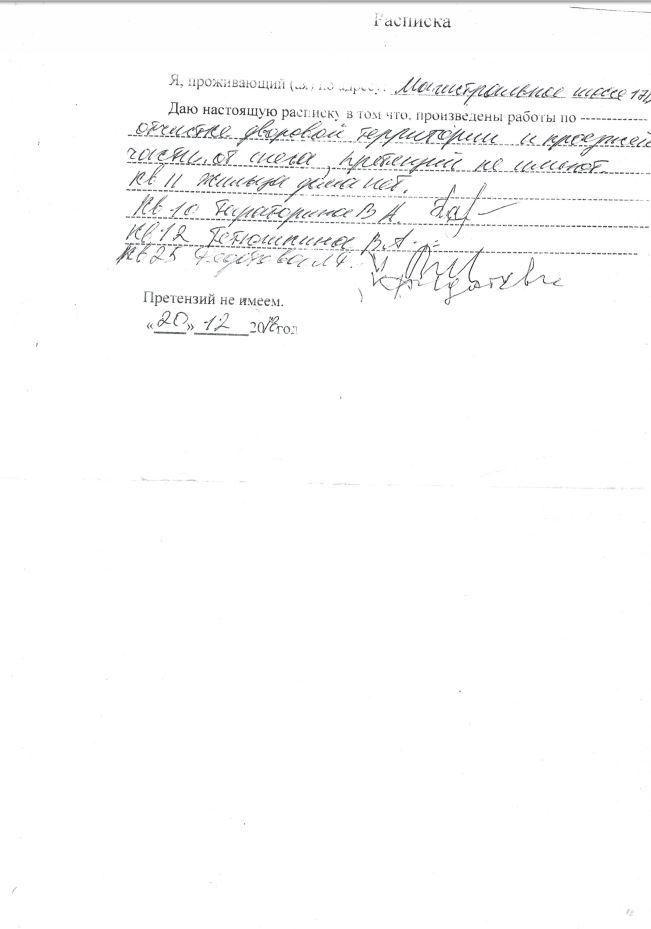 Расписка
Я, проживающий (ая) по адресу: Магистральное шоссе
Даю настоящую расписку в том что, произведены работы по
отчистке дворовой территории и проезжей
части от снега, претензий не имеют
кв 11 жильца дома нет.
кв 10 В А
кв 12 В.А.
кв 25
Претензий не имеем.
«20» 12 20 год